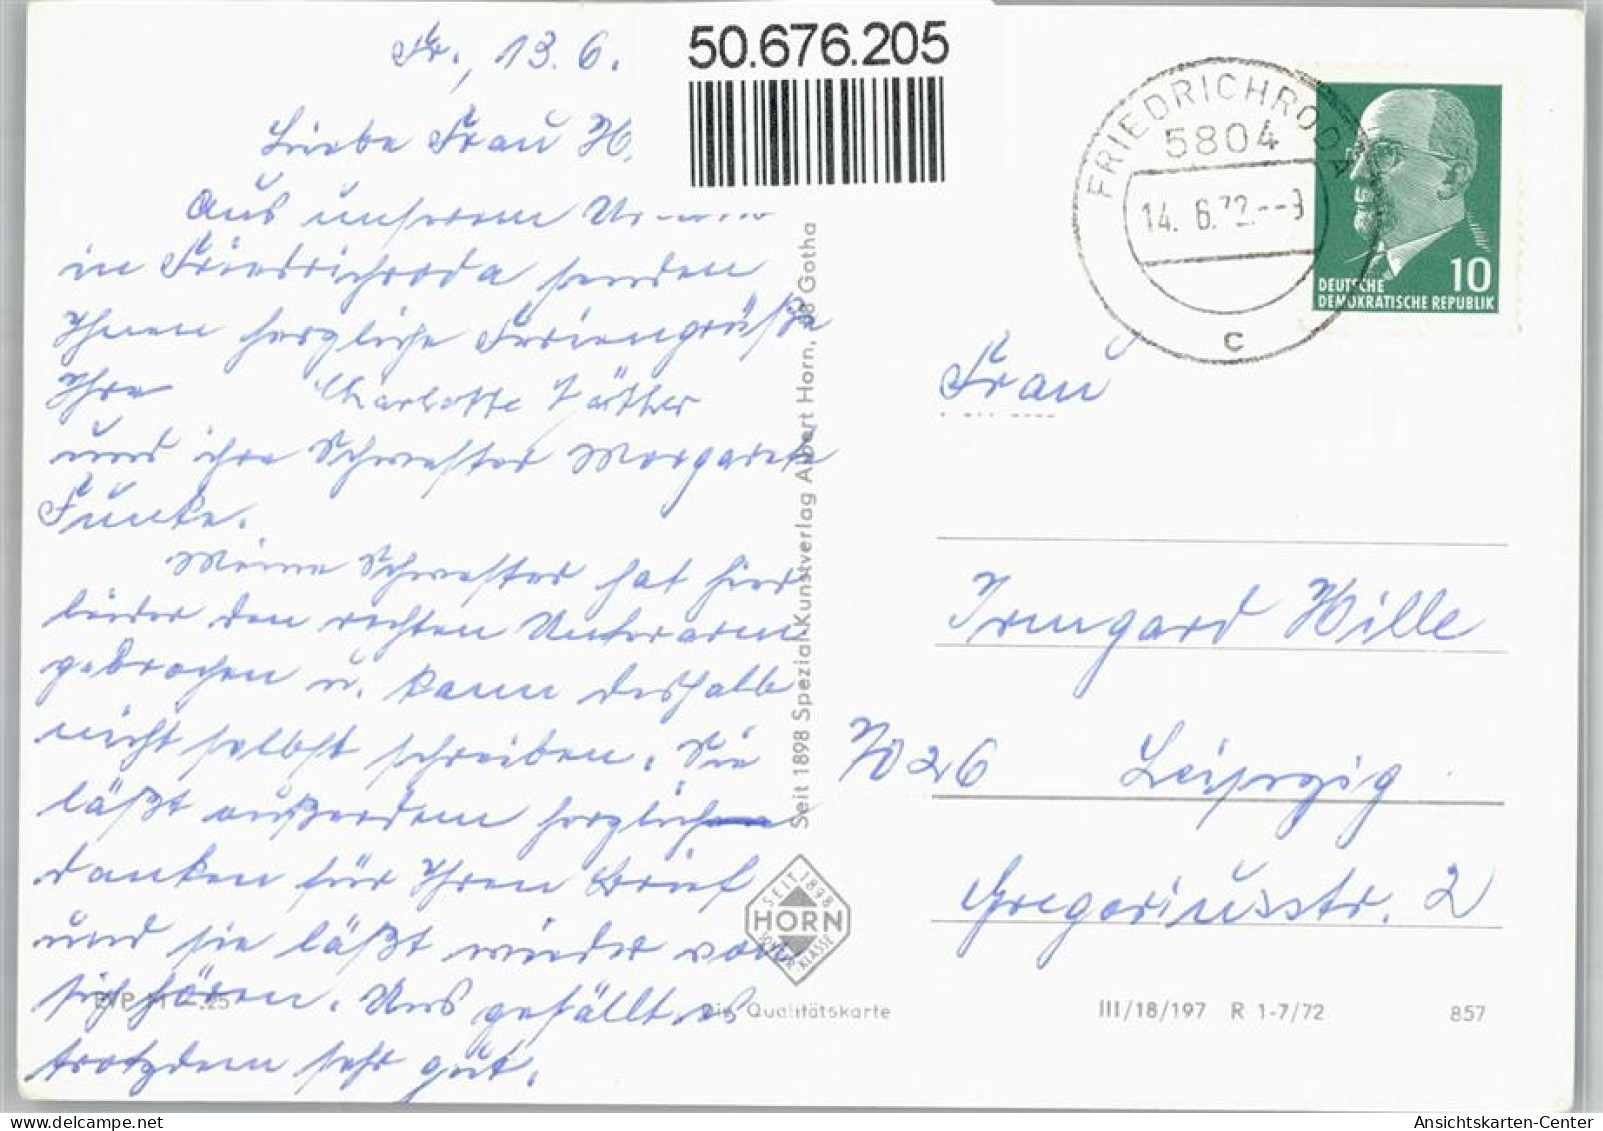 Fr., 13. 6.
50.676.205
Liebe Frau H.
Aus unserem
in Friedrichroda senden
Ihnen herzliche Feriengrüße
Ihre Charlotte
und ihre Schwester Margarete
Funke.
Meine Schwester hat hier
leider den rechten Unterarm
gebrochen u. kann deshalb
nicht selbst schreiben. Sie
läßt außerdem herzlich
danken für Ihren Brief
und sie läßt wieder von
sich hören. Uns gefällt es
trotzdem sehr gut.
EVP M —.25
Seit 1898 Spezial-Kunstverlag Albert Horn, 58 Gotha
SEIT 1898
HORN
SCHÄR KLASSE
Die Qualitätskarte
FRIEDRICHRODA
5804
14. 6. 72.--9
c
10
DEUTSCHE
DEMOKRATISCHE REPUBLIK
Frau
Irmgard Hille
7026 Leipzig
Gregoriusstr. 2
III/18/197 R 1-7/72 857
Ansichtskarten-Center